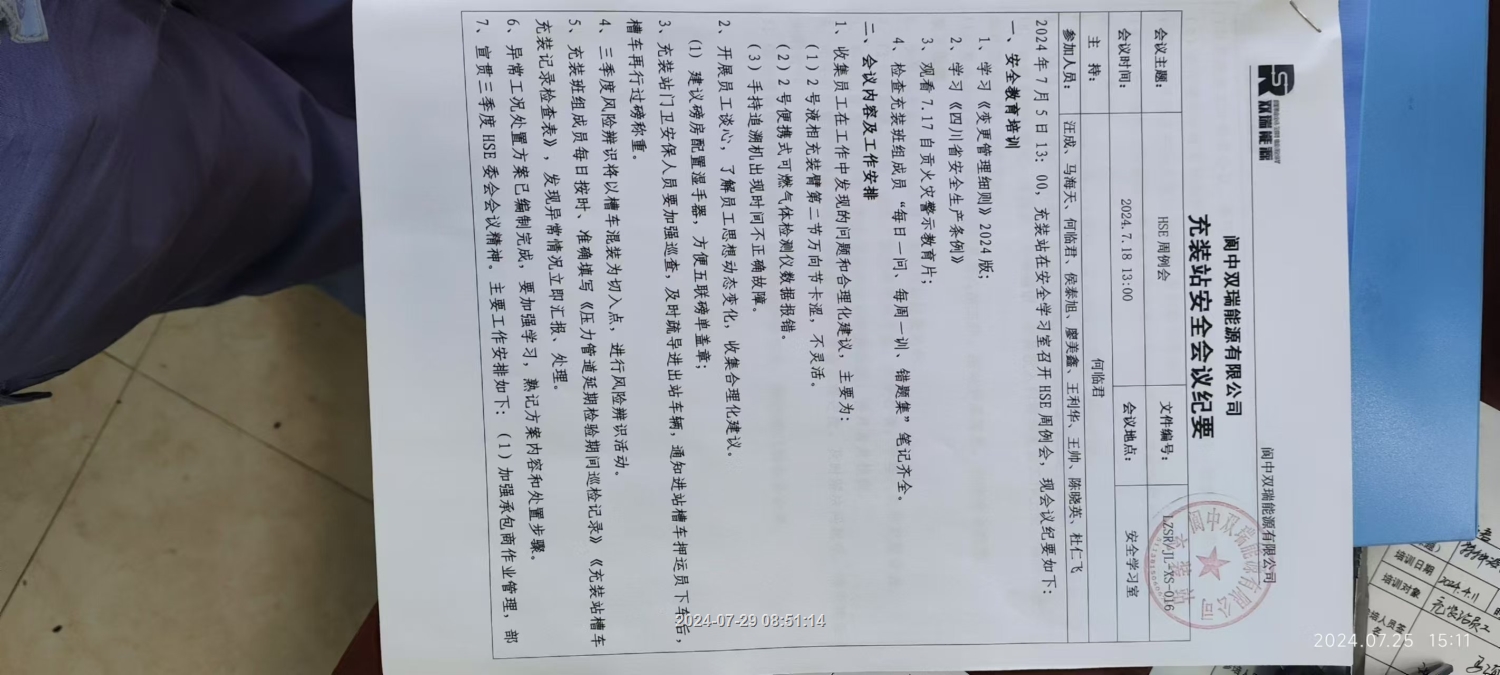 双瑞能源
阆中双瑞能源有限公司
阆中双瑞能源有限公司
充装站安全会议纪要
会议主题： HSE 周例会 文件编号： LZSR/JL-XS-016
会议时间： 2024.7.18 13:00 会议地点： 安全学习室
主 持： 何临君
参加人员： 汪成、马海天、何临君、侯泰旭、廖美鑫、王利华、王帅、陈晓英、杜仁飞
2024 年 7 月 5 日 13：00，充装站在安全学习室召开 HSE 周例会，现会议纪要如下：
一、安全教育培训
1、学习《变更管理细则》2024 版；
2、学习《四川省安全生产条例》
3、观看 7.17 自贡火灾警示教育片；
4、检查充装班组成员“每日一问、每周一训、错题集”笔记齐全。
二、会议内容及工作安排
1、收集员工在工作中发现的问题和合理化建议，主要为：
（1）2 号液相充装臂第二节万向节卡涩，不灵活。
（2）2 号便携式可燃气体检测仪数据报错。
（3）手持追溯机出现时间不正确故障。
2、开展员工谈心，了解员工思想动态变化，收集合理化建议。
（1）建议磅房配置湿手器，方便五联磅单盖章；
3、充装站门卫安保人员要加强巡查，及时疏导进出站车辆，通知进站槽车押运员下车后，
槽车再行过磅称重。
4、三季度风险辨识将以槽车混装为切入点，进行风险辨识活动。
5、充装班组成员每日按时、准确填写《压力管道延期检验期间巡检记录》《充装站槽车
充装记录检查表》，发现异常情况立即汇报、处理。
6、异常工况处置方案已编制完成，要加强学习，熟记方案内容和处置步骤。
7、宣贯三季度 HSE 委会会议精神。主要工作安排如下：（1）加强承包商作业管理，部
培训日期 2024.7.11
培训对象
2024-07-29 08:51:14
2024.07.25 15:11